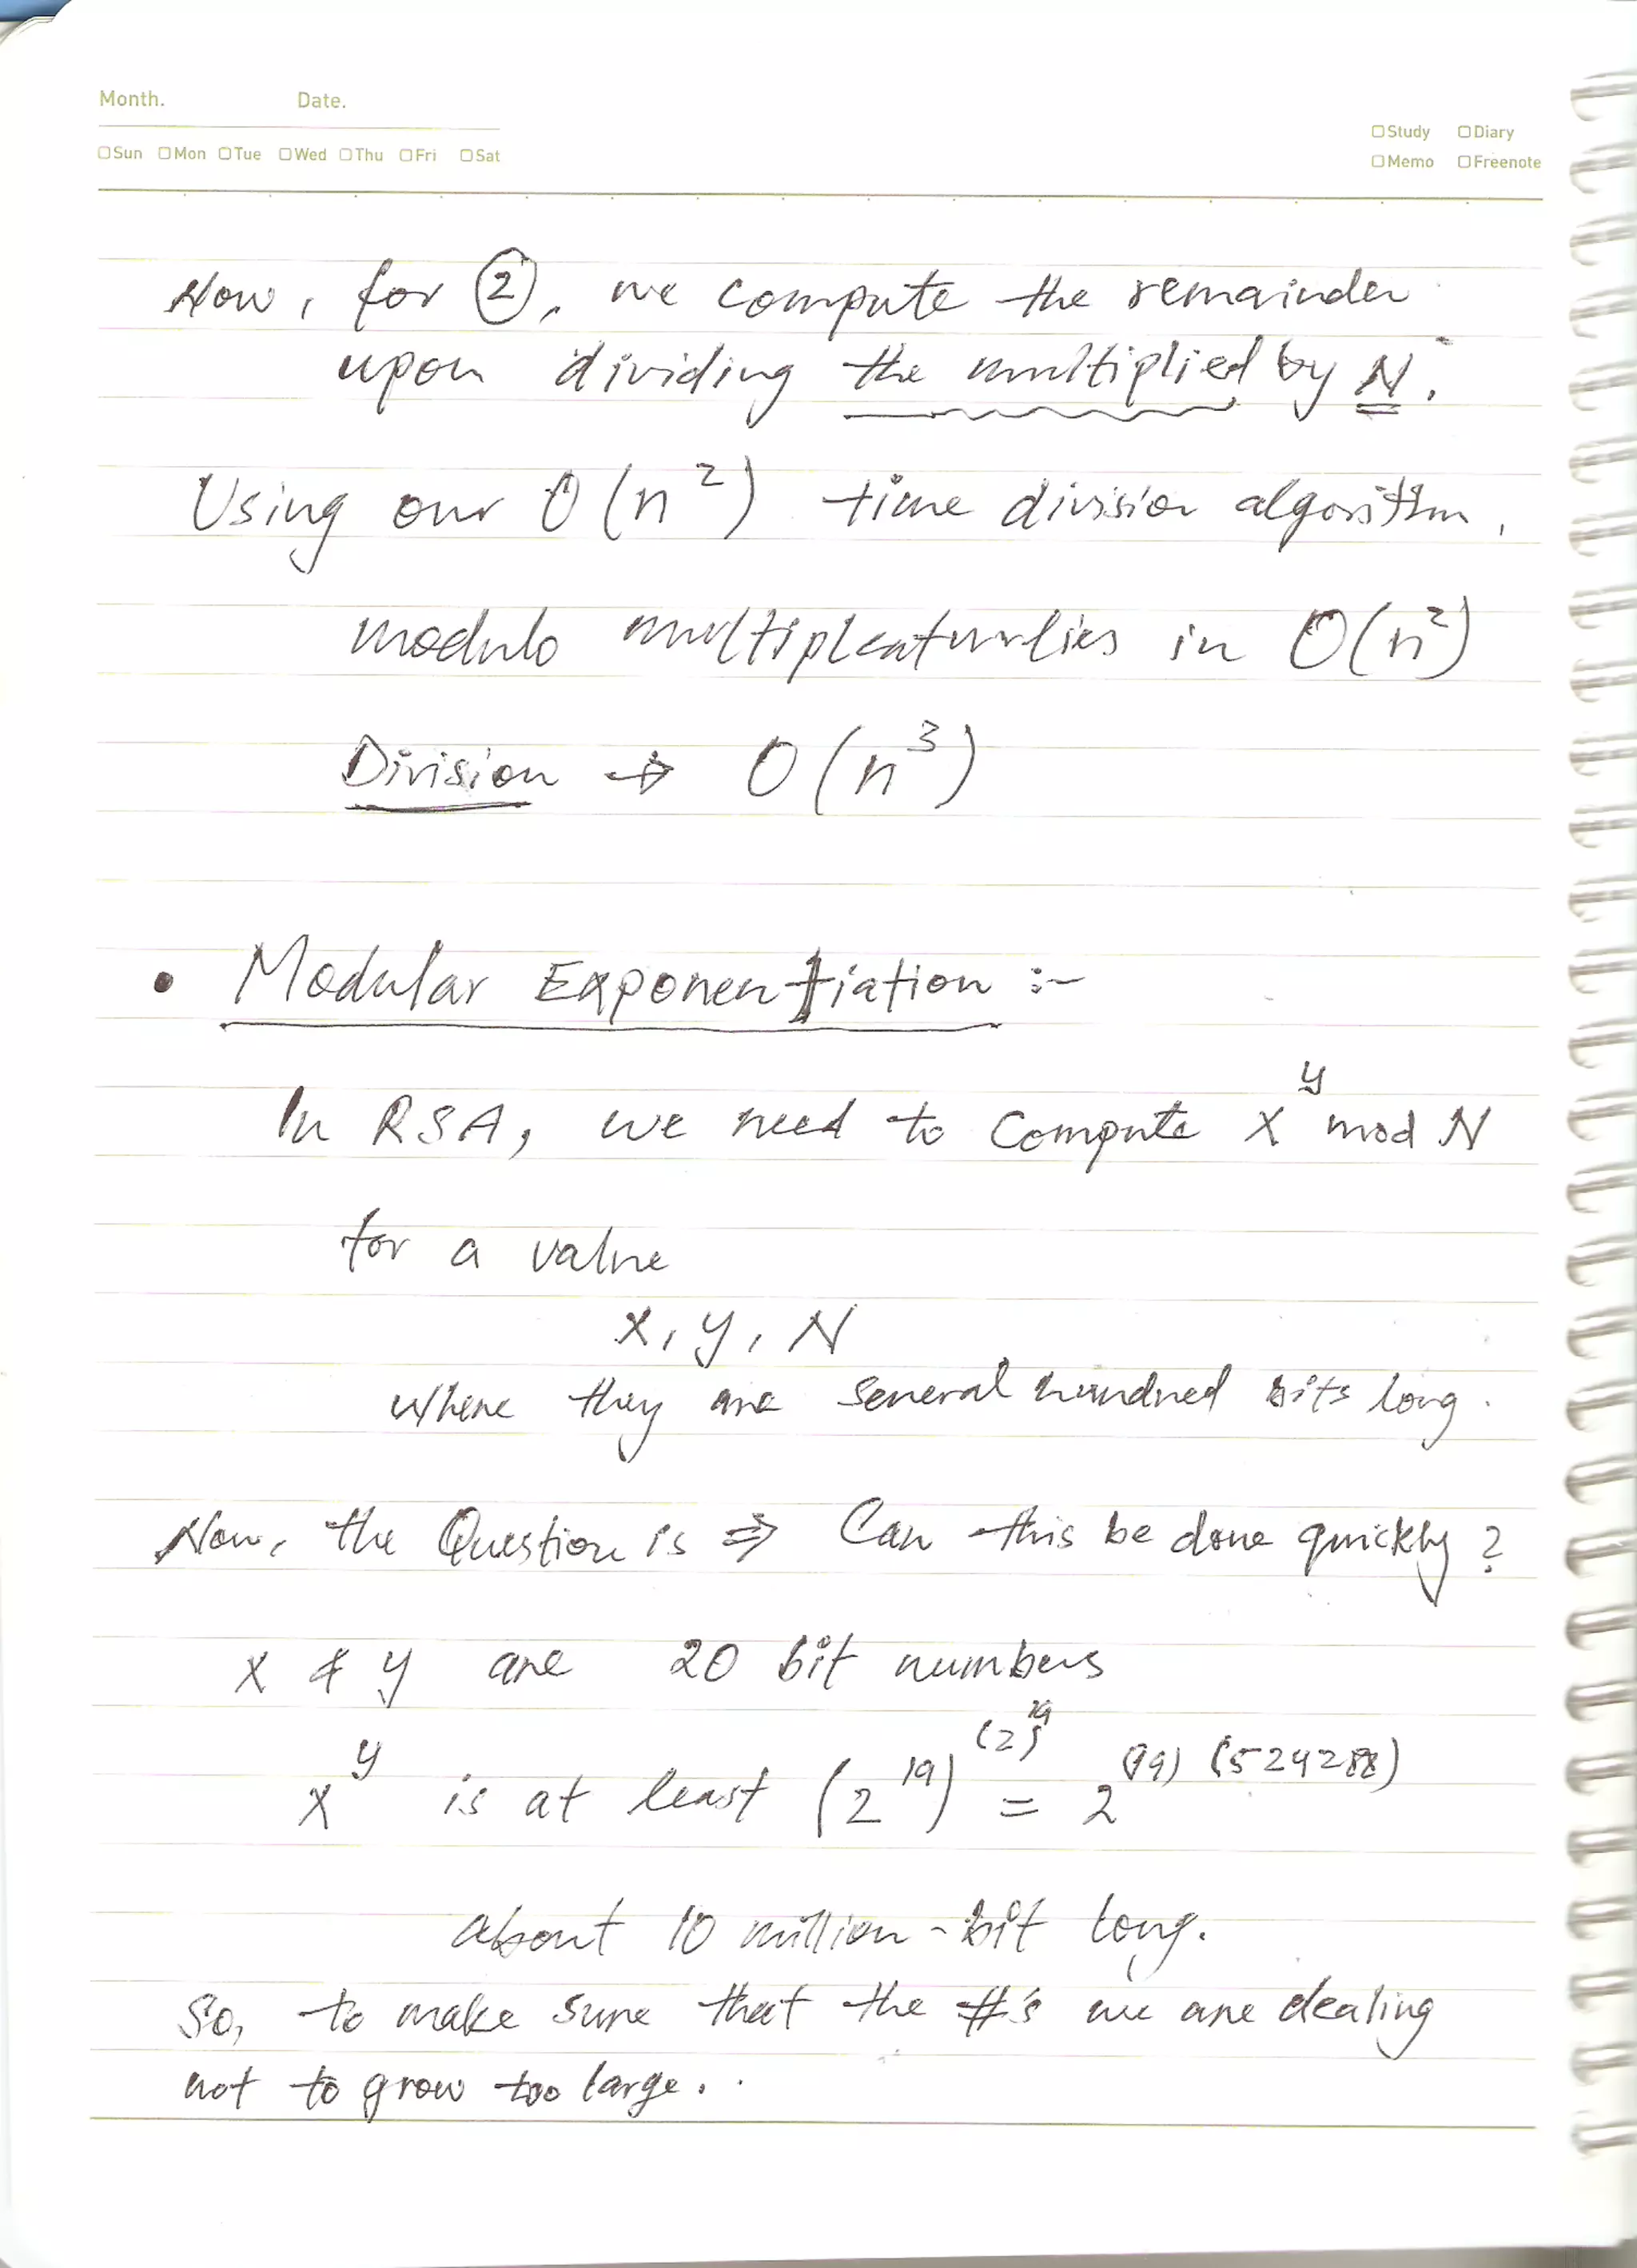 Month. Date.
☐Sun ☐Mon ☐Tue ☐Wed ☐Thu ☐Fri ☐Sat
☐Study ☐Diary
☐Memo ☐Freenote
Now, for ②, we compute the remainder
upon dividing the multiplied by N.
Using our O(n²) time division algorithm,
modulo in O(n²)
Division → O(n³)
• Modular Exponentiation :-
In RSA, we need to compute x^y mod N
for a value
x, y, N
where they are several hundred bits long.
Now, the Question is ⇒ Can this be done quickly?
x & y are 20 bit numbers
x^y is at least (2^19)^(2)^19 = 2^(19) (524288)
about 10 million-bit long.
So, to make sure that the #'s we are dealing
not to grow too large.